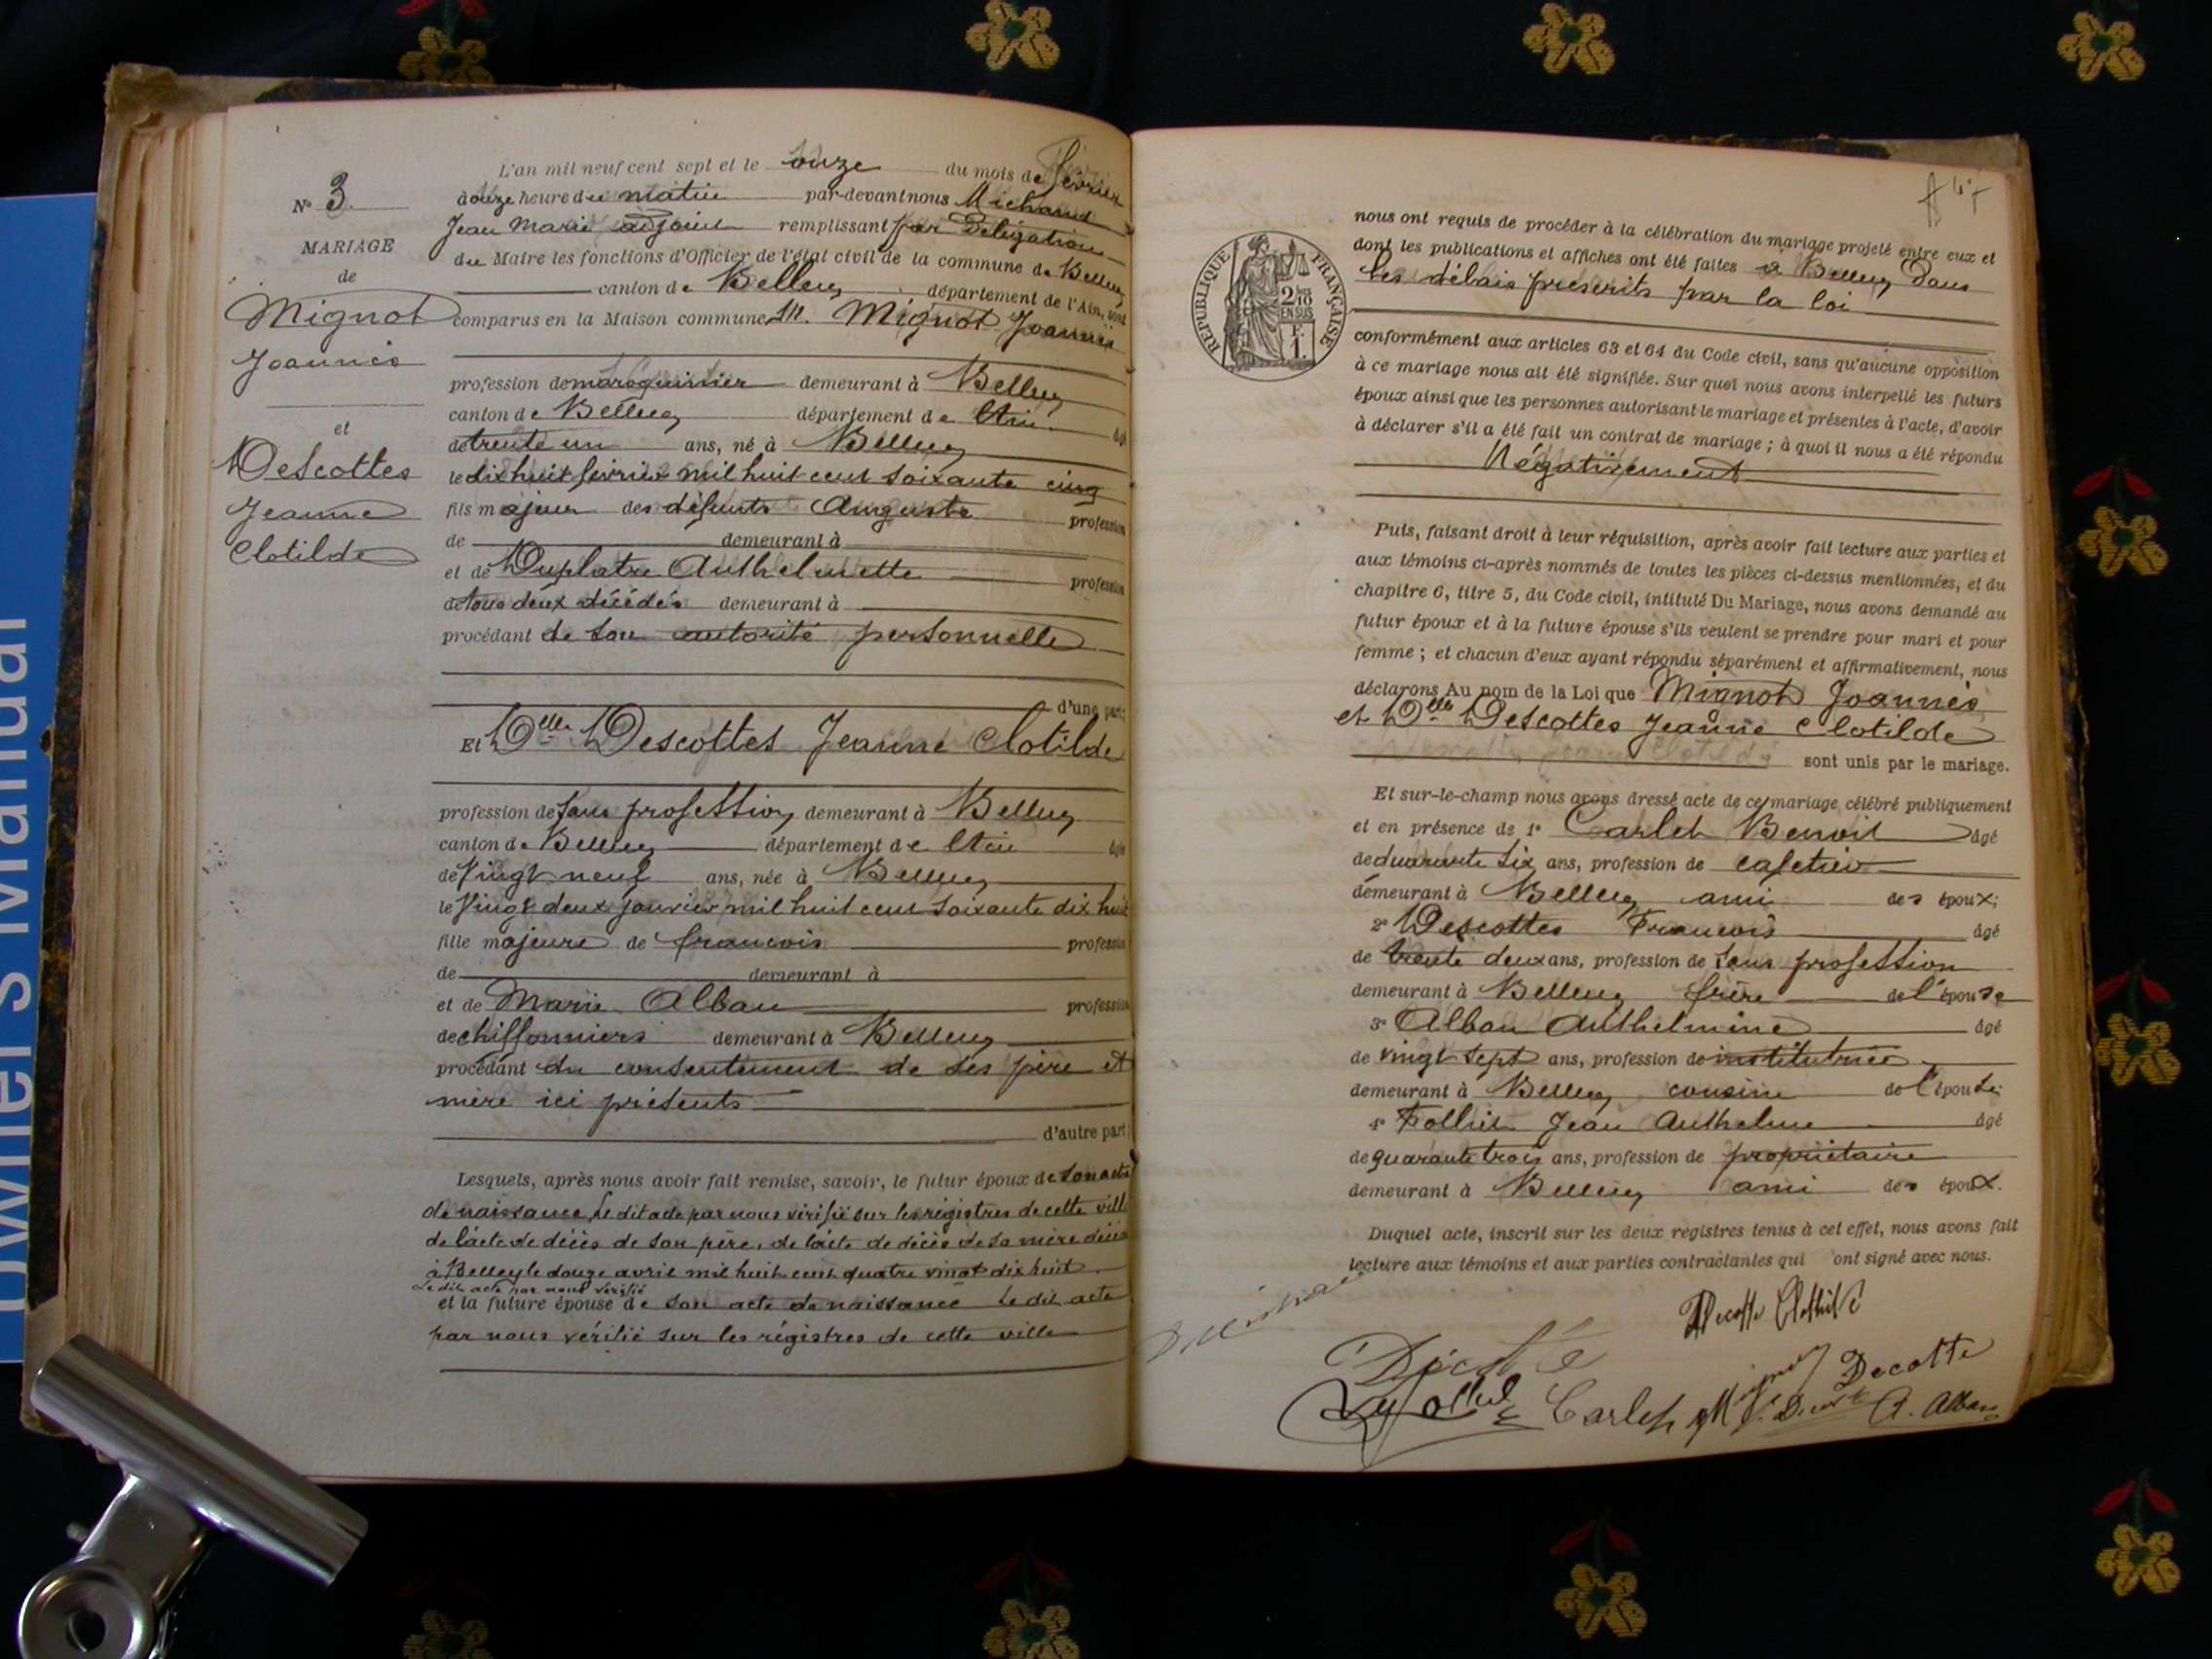 Owner's Manual
N° 3
MARIAGE
de
Mignot
Joannès
et
Descottes
Jeanne
Clotilde
L'an mil neuf cent sept et le onze du mois de février
à onze heure du matin par-devant nous Michaud
Jean Marie adjoint remplissant par Délégation
du Maire les fonctions d'Officier de l'état civil de la commune de Belley
canton de Belley département de l'Ain, sont
comparus en la Maison commune M. Mignot Joannès
profession de maroquinier demeurant à Belley
canton de Belley département de l'Ain âgé
de trente un ans, né à Belley
le dix huit février mil huit cent soixante cinq
fils majeur des défunts Auguste profession
de demeurant à
et de Duplatre Anthelmette profession
de tous deux décédés demeurant à
procédant de son autorité personnelle
d'une part;
Et Delle Descottes Jeanne Clotilde
profession de sans profession demeurant à Belley
canton de Belley département de l'Ain âgée
de vingt neuf ans, née à Belley
le vingt deux janvier mil huit cent soixante dix huit
fille majeure de francois profession
de demeurant à
et de Marie Alban profession
de chiffonniers demeurant à Belley
procédant du consentement de ses père et
mère ici présents
d'autre part;
Lesquels, après nous avoir fait remise, savoir, le futur époux de son acte
de naissance, le dit acte par nous vérifié sur les régistres de cette ville
de l'acte de décès de son père, de l'acte de décès de sa mère décédé
à Belley le douze avril mil huit cent quatre vingt dix huit
Le dit acte par nous vérifié
et la future épouse de son acte de naissance le dit acte
par nous vérifié sur les régistres de cette ville
RÉPUBLIQUE FRANÇAISE
2/10 EN SUS
F.
1.
nous ont requis de procéder à la célébration du mariage projeté entre eux et
dont les publications et affiches ont été faites à Belley dans
les délais prescrits par la loi
conformément aux articles 63 et 64 du Code civil, sans qu'aucune opposition
à ce mariage nous ait été signifiée. Sur quoi nous avons interpellé les futurs
époux ainsi que les personnes autorisant le mariage et présentes à l'acte, d'avoir
à déclarer s'il a été fait un contrat de mariage ; à quoi il nous a été répondu
Négativement
Puis, faisant droit à leur réquisition, après avoir fait lecture aux parties et
aux témoins ci-après nommés de toutes les pièces ci-dessus mentionnées, et du
chapitre 6, titre 5, du Code civil, intitulé Du Mariage, nous avons demandé au
futur époux et à la future épouse s'ils veulent se prendre pour mari et pour
femme ; et chacun d'eux ayant répondu séparément et affirmativement, nous
déclarons Au nom de la Loi que Mignot Joannès
et Delle Descottes Jeanne Clotilde
sont unis par le mariage.
Et sur-le-champ nous avons dressé acte de ce mariage, célébré publiquement
et en présence de 1° Carlet Benoit âgé
de quarante six ans, profession de cafetier
demeurant à Belley ami des époux;
2° Descottes Francois âgé
de trente deux ans, profession de sans profession
demeurant à Belley frère de l'épouse
3° Alban Anthelmine âgé
de vingt sept ans, profession de institutrice
demeurant à Belley cousine de l'épouse;
4° Folliet Jean Anthelme âgé
de quarante trois ans, profession de propriétaire
demeurant à Belley ami des époux.
Duquel acte, inscrit sur les deux registres tenus à cet effet, nous avons fait
lecture aux témoins et aux parties contractantes qui ont signé avec nous.
Decotte Clothilde
Decotte
Carlet
Mignot
A. Alban